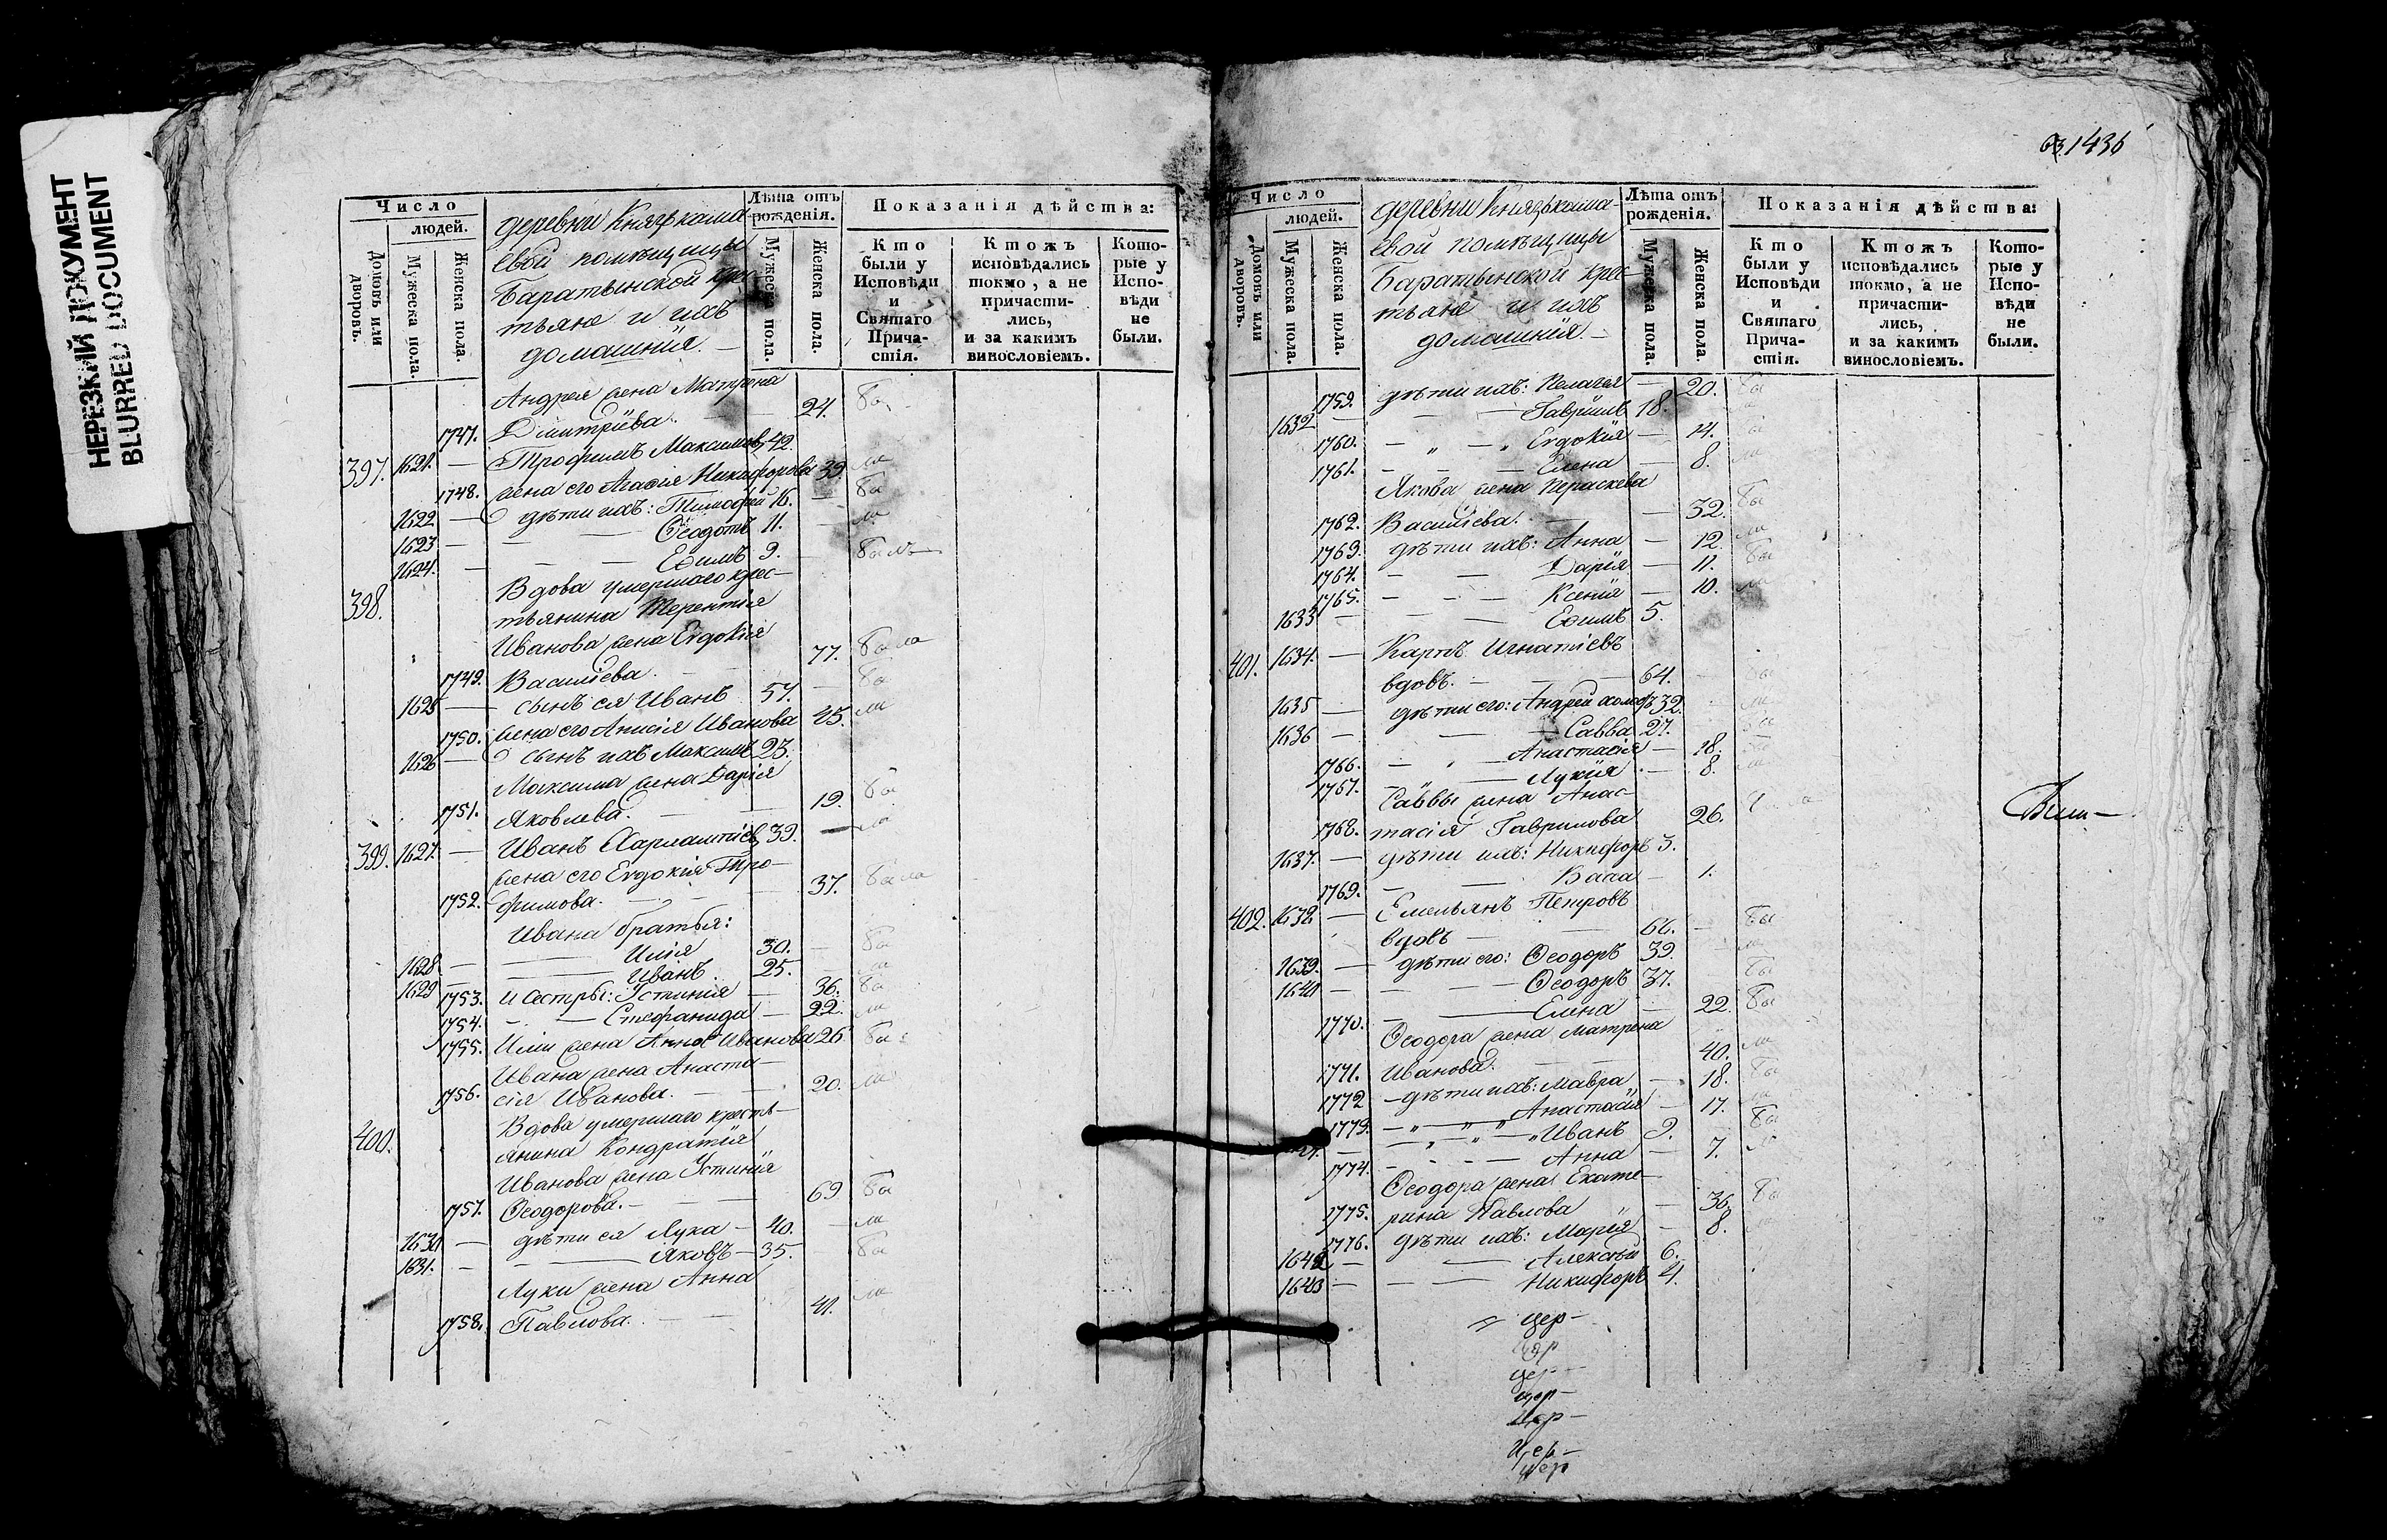 НЕРЕЗКИЙ ДОКУМЕНТ
BLURRED DOCUMENT
1436
Число
людей.
Домовъ или дворовъ.
Мужеска пола.
Женска пола.
деревни Князькама-
евой помѣщицы
Баратынской крес-
тьяне и ихъ
домашнія.
Лѣта отъ рожденія.
Мужеска пола.
Женска пола.
Показанія дѣйства:
Кто были у Исповѣди и Святаго Прича-стія.
Ктожъ исповѣдались токмо, а не причасти-лись, и за какимъ винословіемъ.
Кото-рые у Испо-вѣди не были.
Андрея жена Матрена
1747. Дмитріева. 24. бы
397. 1621. — Трофимъ Максимовъ 42.
1748. жена его Агафія Никифорова 39. ли
1622 — дѣти ихъ: Тимофей 16. — бы
1623 — Ѳеодотъ 11. — ли
1624. — Еѳимъ 9. — былъ
398. Вдова умершаго крес-
тьянина Терентія
Иванова жена Евдокія
1749. Василіева. 77. была
1625 — сынъ ея Иванъ 57. — бы
1750. жена его Анисія Иванова 45. ли
1626 — сынъ ихъ Максимъ 23.
Максима жена Дарія
1751. Яковлева. 19. бы
399. 1627. — Иванъ Харлампіевъ 39. — ли
жена его Евдокія Тро-
1752. фимова. 37. была
Ивана братья:
1628 — Илія 30. — бы
1629 — Иванъ 25. ли
1753. и сестры: Устинія — 36. бы
1754. — Стефанида — 22. ли
1755. Иліи жена Анна Иванова 26 бы
Ивана жена Анаста-
1756. сія Иванова. 20. ли
400. Вдова умершаго кресть-
янина Кондратія
Иванова жена Устинія
1757. Ѳеодорова. 69 бы
1630 — дѣти ея Лука — 40. — ли
1631. — Яковъ — 35. бы
Луки жена Анна
1758. Павлова. 41. ли
Число
людей.
Домовъ или дворовъ.
Мужеска пола.
Женска пола.
деревни Князькама-
евой помѣщицы
Баратынской крес-
тьяне и ихъ
домашнія.
Лѣта отъ рожденія.
Мужеска пола.
Женска пола.
Показанія дѣйства:
Кто были у Исповѣди и Святаго Прича-стія.
Ктожъ исповѣдались токмо, а не причасти-лись, и за какимъ винословіемъ.
Кото-рые у Испо-вѣди не были.
1759. дѣти ихъ: Пелагея — 20. бы
1632 — Гавріилъ 18.
1760. — Евдокія — 14.
1761. — Елена — 8. ли
Якова жена Пераскева
1762. Василіева. — 32. бы
1763. дѣти ихъ: Анна — 12. ли
1764. — Дарія — 11. бы
1765. — Ксенія — 10. ли
1633 — Еѳимъ 5.
401. 1634. — Карпъ Игнатіевъ
вдовъ. 64. бы
1635 — дѣти его: Андрей холостъ 32. ли
1636 — Савва 27. бы
1766. — Анастасія — 18.
1767. — Лукія — 8. ли
Саввы жена Анас-
1768. тасія Гаврилова 26.
1637. — дѣти ихъ: Никифоръ 3.
1769. — Васа — 1.
402. 1638 — Емельянъ Петровъ
вдовъ — 66. — бы
1639. — дѣти его: Ѳеодоръ 39. ли
1640 — Ѳеодоръ 37. бы
1770. — Елена — 22. бы
Ѳеодора жена Матрена
1771. Иванова. 40. ли
1772 — дѣти ихъ: Мавра — 18. бы
1773. — Анастасія — 17. ли
— Иванъ 9. бы
1774. — Анна — 7.
Ѳеодора жена Екате-
1775. рина Павлова — 36. бы
1776. дѣти ихъ: Марія — 8. ли
1642 — Алексѣй 6.
1643 — Никифоръ 4.
цер-
цер
цер-
цер-
цер-
цер-
цер